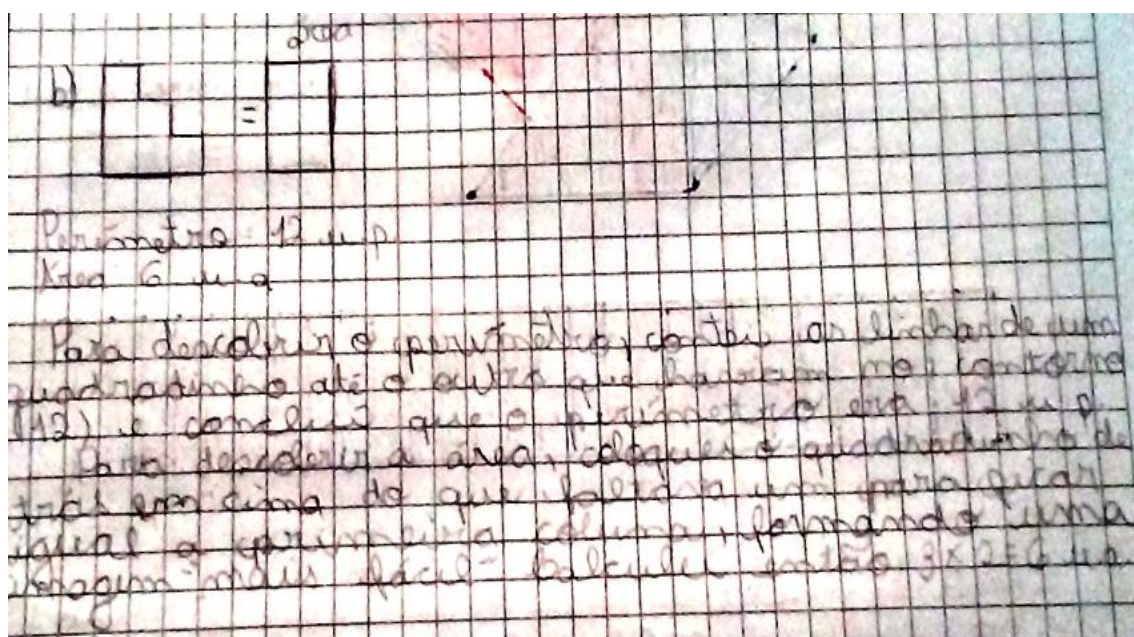 área
b)
=
Perímetro: 12 u p
Área 6 u a
Para descobrir o perímetro, contei as linhas de um
quadradinho até o outro que haviam no contorno
(12) e concluí que o perímetro era 12 u p.
Para descobrir a área, coloquei o quadradinho de
trás em cima do que faltava um para ficar
igual a primeira coluna, formando uma
imagem mais fácil. Calculei então 3x2=6 u a